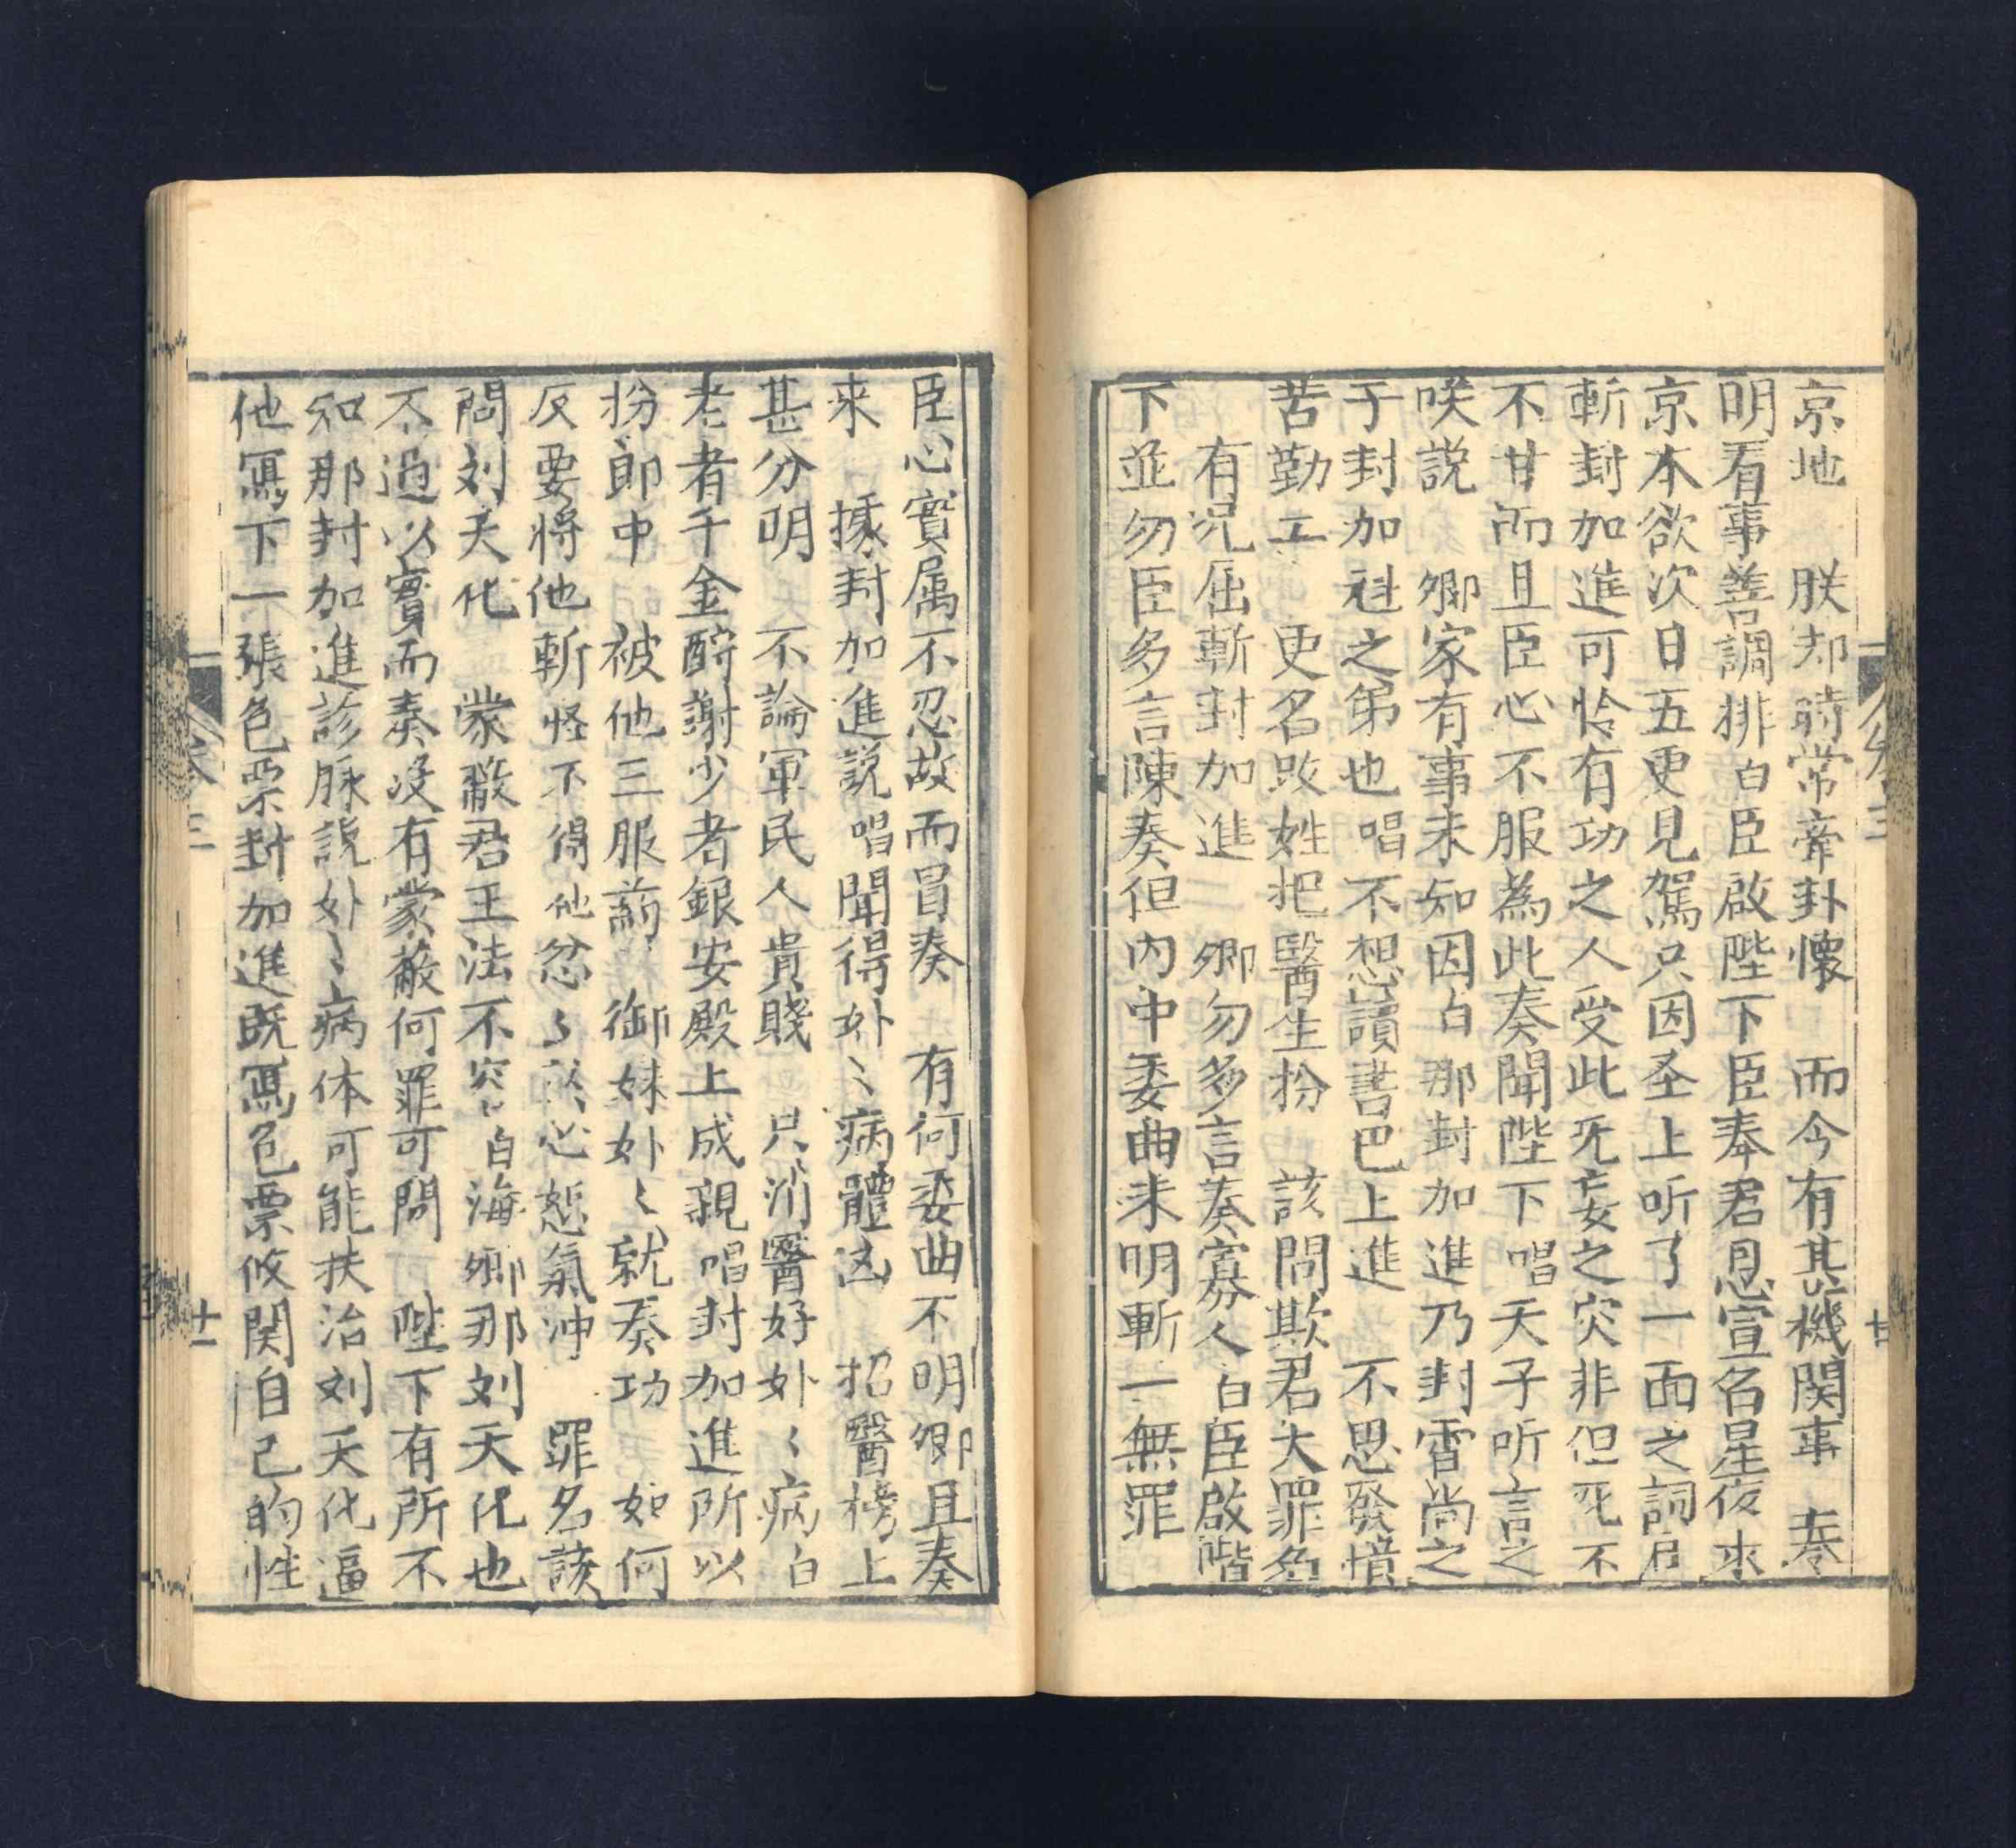 京地 朕却時常牽卦懷 而今有甚機関事 奏
明看事善調排白臣啟陛下臣奉君恩宣名星夜來
京本欲次日五更見駕只因圣上听了一面之詞
斬封加進可怜有功之人受此死妄之灾非但死不
不甘而且臣心不服為此奏聞陛下唱天子听言之
唉説 卿家有事未知因白那封加進乃封霄尚之
于封加進之弟也唱不想讀書巴上進 不思發憤
苦勤工 更名改姓把醫生扮 該問欺君大罪名
有况屈斬封加進 卿勿多言奏寡人白臣啟階
下並勿臣多言陳奏但内中委曲未明斬一無罪
臣心實属不忍故而冒奏 有何委曲不明卿且奏
来 據封加進說唱聞得妣〻病體凶 招醫榜上
甚分明 不論軍民人貴賤 只消醫好妣〻病白
老者千金酧謝少者銀安殿上成親唱封加進所以
扮郎中 被他三服藥 御妹妣〻就奏功 如何
反要將他斬怪不得他忿〻 心怨氣冲 罪名該
問刘天化 蒙蔽君王法不容白海卿那刘天化也
不過以實而奏没有蒙蔽何罪可問 陛下有所不
知那封加進診脉説妣〻病体可能扶治刘天化逼
他寫下一張色票封加進既寫色票攸関自己的性
卷三
廿
卷三
廿一